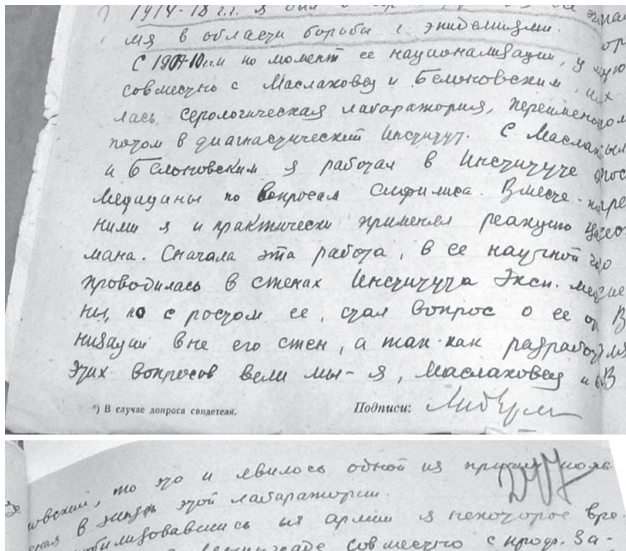 1914-18 г.г. я был
мя в области борьбы с эпидемиями.
С 1909-10 или по момент ее национализации, у
совместно с Маслаковец и Белоновским,
лась серологическая лабаратория, переименов
потом в диагнастический Институт. С Маслак
и Белоновским я работал в Институте
Медицины по вопросам сифилиса. Вместе с
ними я и практически применял реакцию Вассер
мана. Сначала эта работа, в ее научной
проводилась в стенах Института Эксп. мед
ны, но с ростом ее, стал вопрос о ее
низации вне его стен, а так-как разработ
этих вопросов вели мы - я, Маслаковец и
*) В случае допроса свидетеля. Подписи:
новский, то это и явилось одной из причин
ения в жизнь этой лабаратории.
билизовавшись из армии я некоторое вре-
совместно с проф. За-